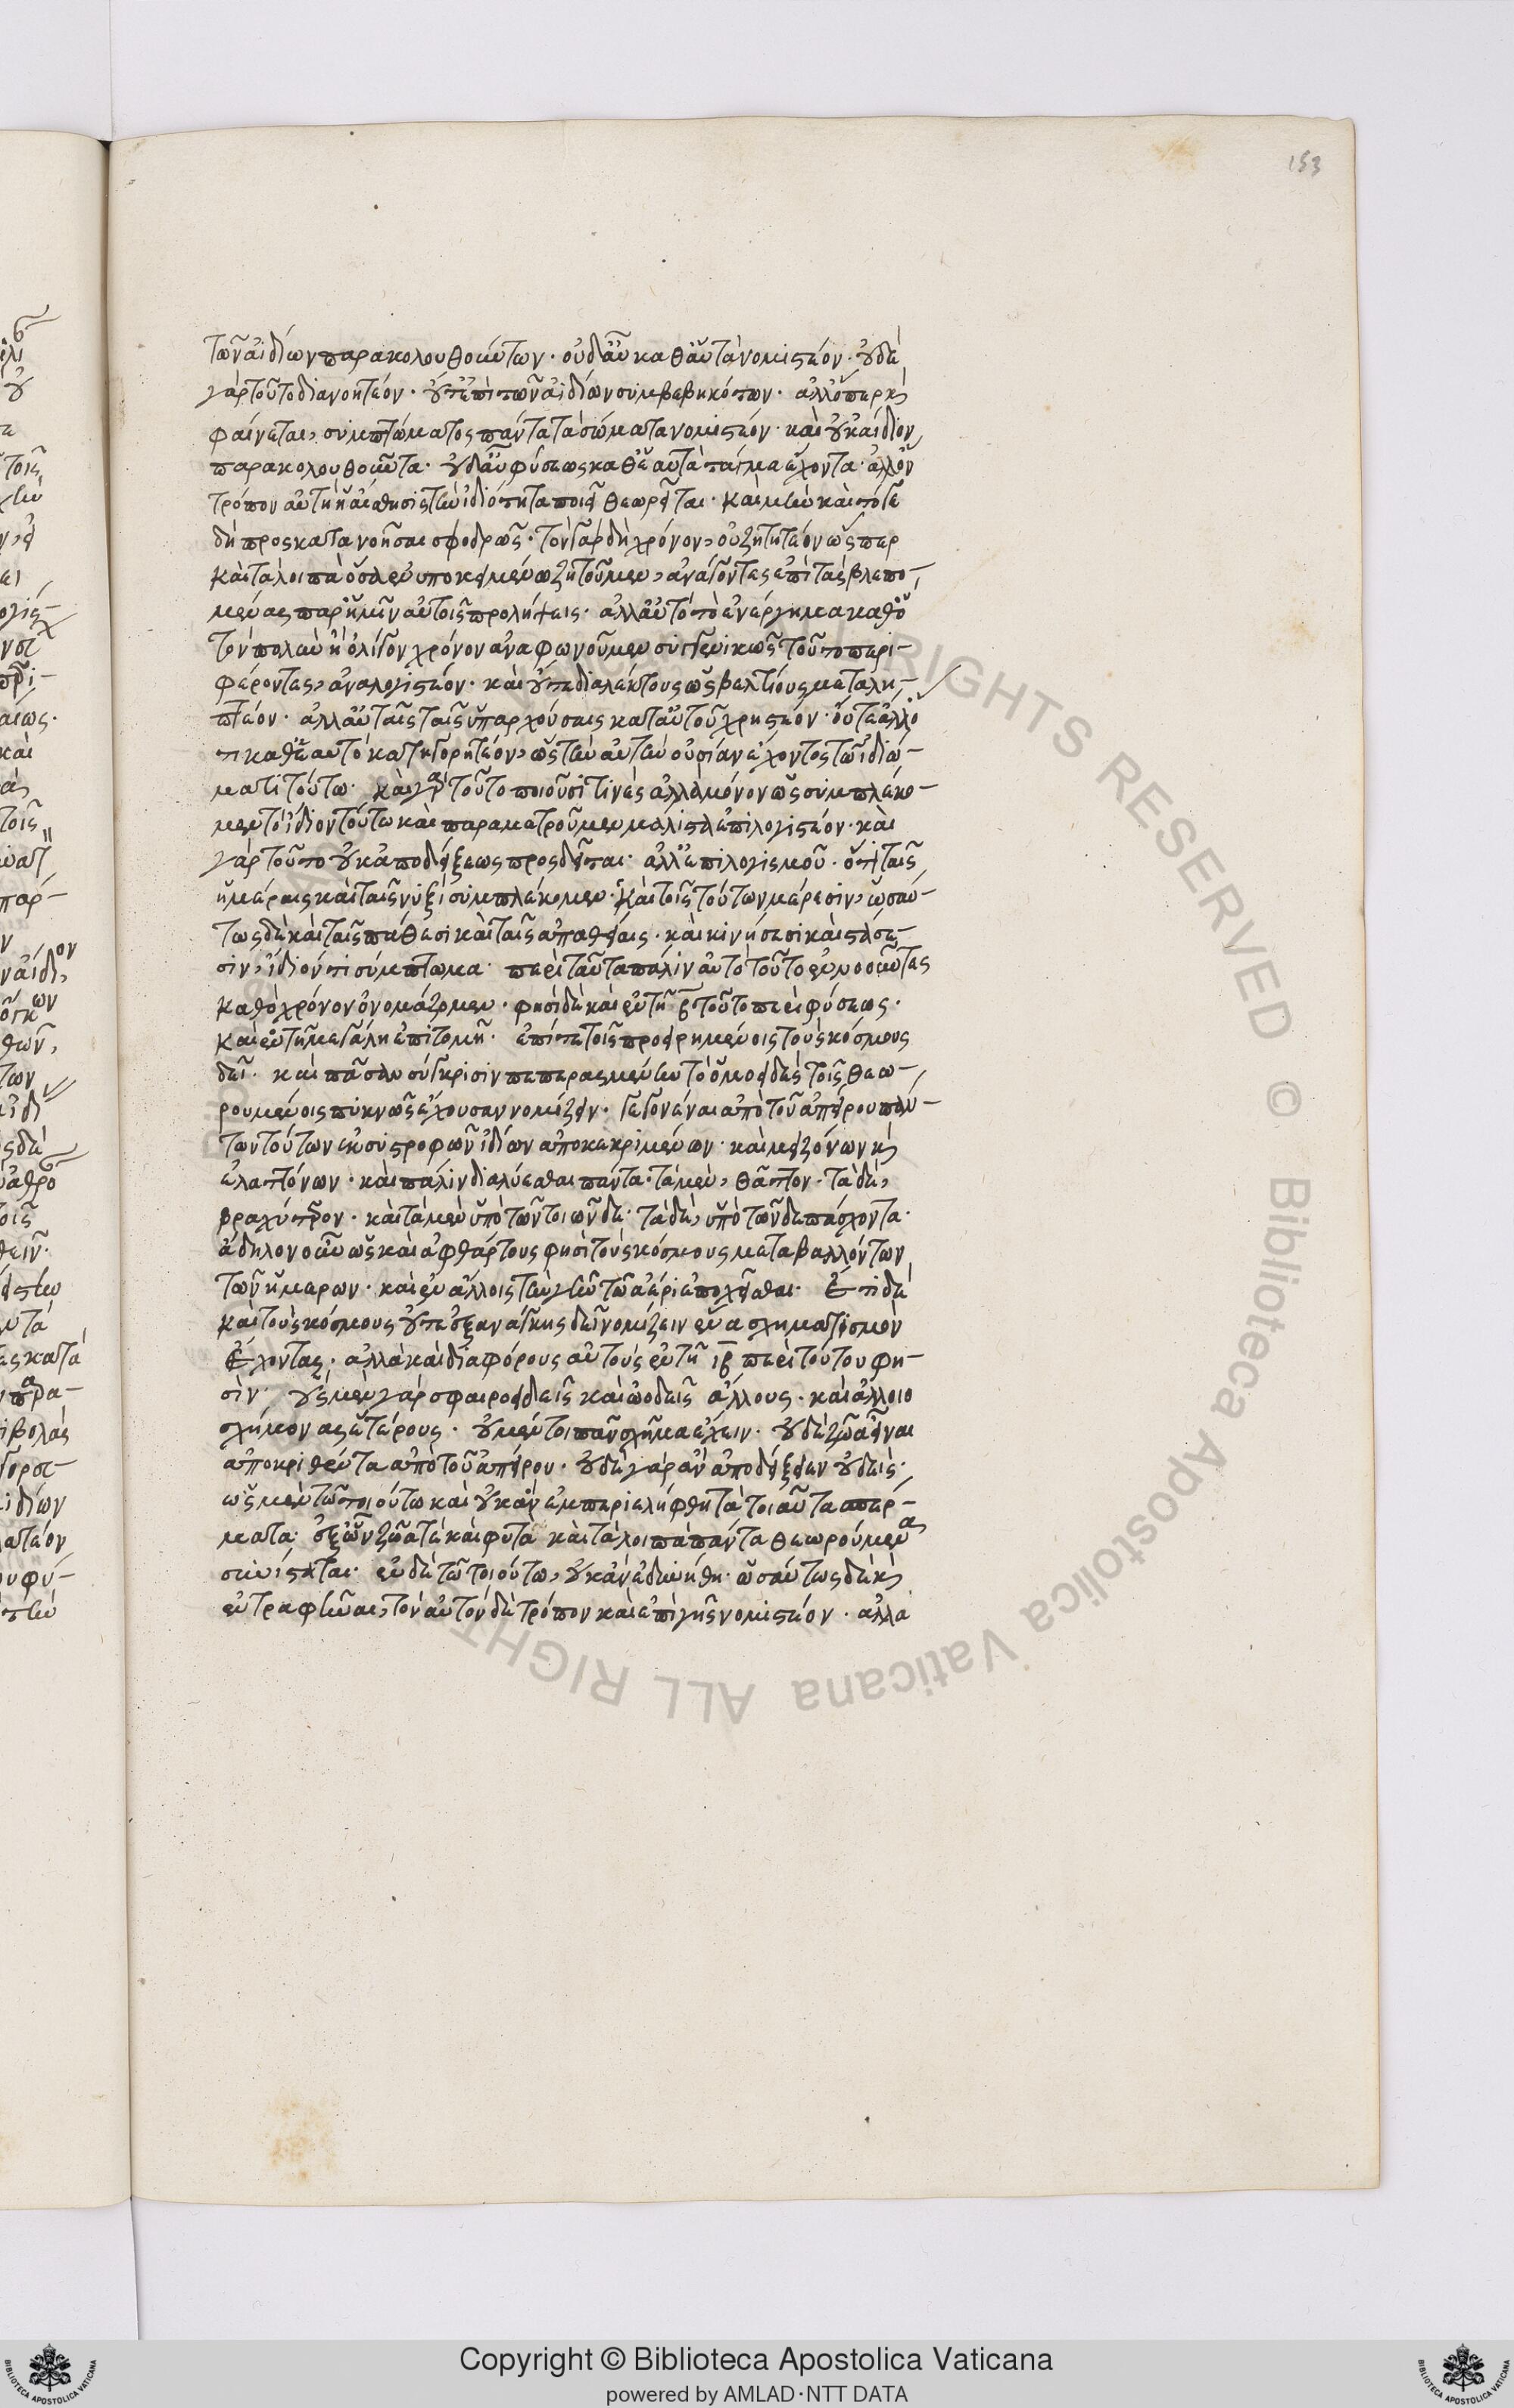 153
τῶν ἀϊδίων παρακολουθούντων· οὐδ' αὖ καθ' αὑτὰ νομιστέον· οὐδὲ
γὰρ τοῦτο διανοητέον· οὔτ' ἐπὶ τῶν ἀϊδίων συμβεβηκότων· ἀλλ' ὅπερ καὶ
φαίνεται, συμπτώματος πάντα τὰ σώματα νομιστέον· καὶ οὐκ ἀίδιον
παρακολουθοῦντα· οὐδ' αὖ φύσεως καθ' ἑαυτὰ τάγμα ἔχοντα· ἀλλ' ὃν
τρόπον αὐτὴ ἡ αἴσθησις τὴν ἰδιότητα ποιεῖ θεωρεῖται· καὶ μὴν καὶ τότε
δὴ προσκατανοῆσαι σφοδρῶς· τὸν γὰρ δὴ χρόνον, οὐ ζητητέον ὥσπερ
καὶ τὰ λοιπὰ ὅσα ἐν ὑποκειμένῳ ζητοῦμεν, ἀνάγοντες ἐπὶ τὰς βλεπο-
μένας παρ' ἡμῖν αὐτοῖς προλήψεις· ἀλλ' αὐτὸ τὸ ἐνάργημα καθ' ὃ
τὸν πολὺν ἢ ὀλίγον χρόνον ἀναφωνοῦμεν συγγενικῶς τοῦτο περι-
φέροντες, ἀναλογιστέον· καὶ οὔτε διαλέκτους ὡς βελτίους μεταλη-
πτέον· ἀλλ' αὐταῖς ταῖς ὑπαρχούσαις κατ' αὐτοῦ χρηστέον· οὔτε ἄλλο
τι καθ' ἑαυτὸ κατηγορητέον, ὡς τὴν αὐτὴν οὐσίαν ἔχοντος τῷ ἰδιώ-
ματι τούτω· καὶ γὰρ τοῦτο ποιοῦσί τινες ἀλλὰ μόνον ὡς συμπλέκο-
μεν τὸ ἴδιον τούτω καὶ παραμετροῦμεν μάλιστα ἐπιλογιστέον· καὶ
γὰρ τοῦτο οὐκ ἀποδείξεως προσδεῖται· ἀλλ' ἐπιλογισμοῦ· ὅτι ταῖς
ἡμέραις καὶ ταῖς νυξὶ συμπλέκομεν· καὶ τοῖς τούτων μέρεσιν, ὡσαύ-
τως δὲ καὶ ταῖς πάθεσι καὶ ταῖς ἀπαθείαις· καὶ κινήσεσι καὶ στάσε-
σιν, ἴδιόν τι σύμπτωμα· περὶ ταῦτα πάλιν αὐτὸ τοῦτο ἐννοοῦντες
καθὸ χρόνον ὀνομάζομεν· φησὶ δὲ καὶ ἐν τῇ β τοῦτο περὶ φύσεως·
καὶ ἐν τῇ μεγάλη ἐπιτομῇ· ἐπί τε τοῖς προειρημένοις τοὺς κόσμους
δεῖ· καὶ πᾶσαν σύγκρισιν πεπερασμένην τὸ ὁμοειδὲς τοῖς θεω-
ρουμένοις πυκνῶς ἔχουσαν νομίζειν· γεγονέναι ἀπὸ τοῦ ἀπείρου πάν-
των τούτων ἐκ συστροφῶν ἰδίων ἀποκεκριμένων· καὶ μειζόνων καὶ
ἐλαττόνων· καὶ πάλιν διαλύεσθαι πάντα· τὰ μὲν, θᾶττον· τὰ δὲ,
βραχύτερον· καὶ τὰ μὲν ὑπὸ τῶν τοιῶνδε· τὰ δὲ, ὑπὸ τῶνδε πάσχοντα·
ἄδηλον οὖν ὡς καὶ ἀφθάρτους φησὶ τοὺς κόσμους μεταβαλλόντων
τῶν ἡμερων· καὶ ἐν ἄλλοις τὴν γῆν τῶ ἀέρι ἐποχεῖσθαι· Ἔτι δὲ
καὶ τοὺς κόσμους οὔτε ἐξ ἀνάγκης δεῖ νομίζειν ἕνα σχηματισμὸν
Ἔχοντας· ἀλλὰ καὶ διαφόρους αὐτοὺς ἐν τῇ ιβ περὶ τούτου φη-
σὶν· οὓς μὲν γὰρ σφαιροειδεῖς καὶ ὠοδεῖς ἄλλους· καὶ ἀλλοιο
σχήμονας ἑτέρους· οὐ μέντοι πᾶν σχῆμα ἔχειν· οὐδὲ ζῶα εἶναι
ἀποκριθέντα ἀπὸ τοῦ ἀπείρου· οὐδὲ γὰρ ἂν ἀποδείξειεν οὐδεὶς·
ὡς μὲν τῶ τοιούτω καὶ οὐκ ἂν ἐμπεριελήφθη τὰ τοιαῦτα σπέρ-
ματα· ἐξ ὧν ζῶα τὲ καὶ φυτὰ καὶ τὰ λοιπὰ πάντα θεωρούμενα
συνίσταται· ἐν δὲ τῶ τοιούτω, οὐκ ἂν ἐδυνήθη· ὡσαύτως δὲ καὶ
ἐντραφῆναι, τὸν αὐτὸν δὲ τρόπον καὶ ἐπὶ γῆς νομιστέον· ἀλλὰ
ALL RIGHTS RESERVED © Biblioteca Apostolica Vaticana
Copyright © Biblioteca Apostolica Vaticana
powered by AMLAD·NTT DATA
BIBLIOTECA APOSTOLICA VATICANA
BIBLIOTECA APOSTOLICA VATICANA